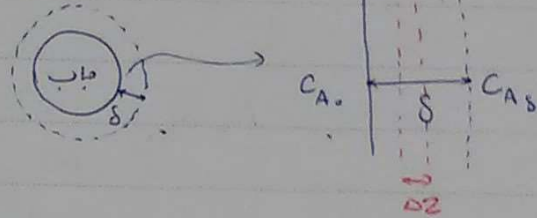 حباب
δ
C_A₀ δ C_Aδ
ΔZ